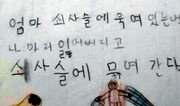 엄마 쇠사슬에 묶여 있는데
나 마저 잃어버리고
쇠사슬에 묶여 간다